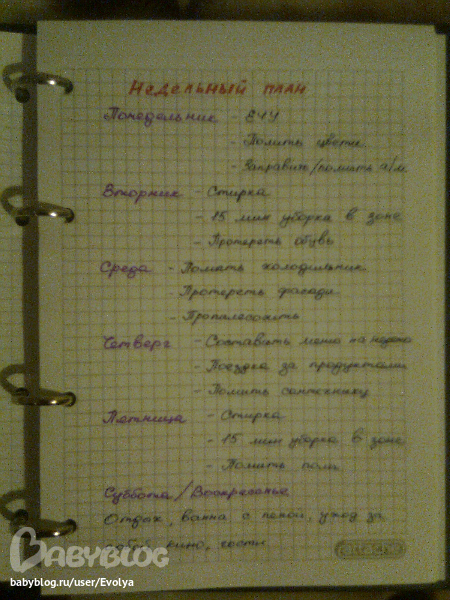 Недельный план
Понедельник - ЕЧУ
- Полить цветы
- Заправить/помыть а/м
Вторник - Стирка
- 15 мин уборка в зоне
- Протереть обувь
Среда - Помыть холодильник
- Протереть фасады
- Пропылесосить
Четверг - Составить меню на неделю
- Поездка за продуктами
- Помыть сантехнику
Пятница - Стирка
- 15 мин уборка в зоне
- Помыть полы
Суббота/Воскресенье
Отдых, ванна с пеной, уход за
собой, кино, гости
BABYBLOG
babyblog.ru/user/Evolya